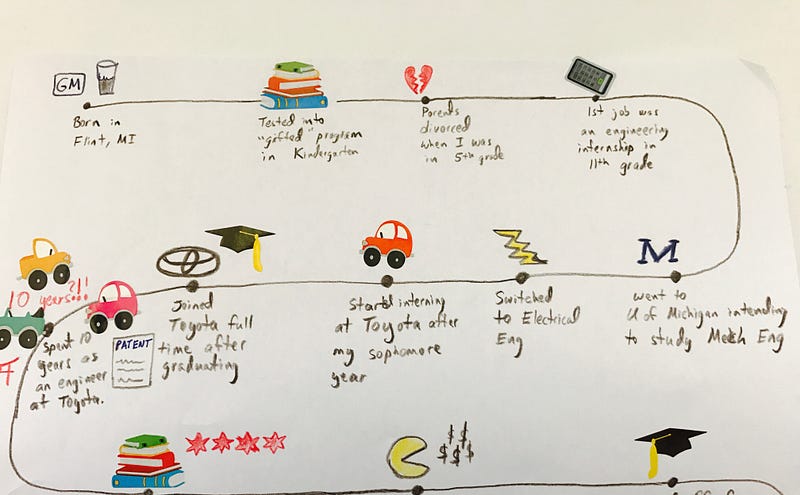 GM
Born in
Flint, MI
Tested into
"gifted" program
in Kindergarten
Parents
divorced
when I was
in 5th grade
1st job was
an engineering
internship in
11th grade
M
went to
U of Michigan intending
to study Mech Eng
Switched
to Electrical
Eng
Started interning
at Toyota after
my sophomore
year
Joined
Toyota full
time after
graduating
PATENT
10 years...?!!
Spent 10
years as
an engineer
at Toyota.
$ $
$ $ $